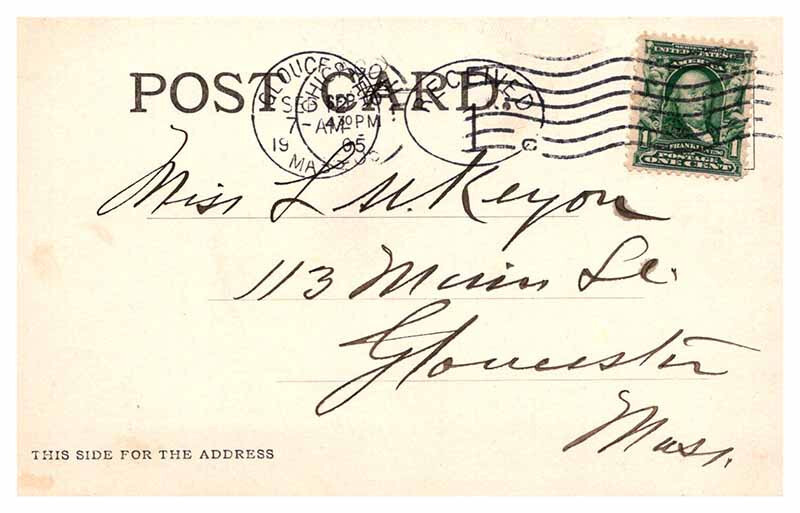 POST CARD.
GLOUCESTER
SEP
7-AM
4 30 PM
19 05
MASS.
RECEIVED
1
C
UNITED STATES OF AMERICA
FRANKLIN
POSTAGE
ONE CENT
Miss L M. Kenyon
113 Main St.
Gloucester
Mass.
THIS SIDE FOR THE ADDRESS